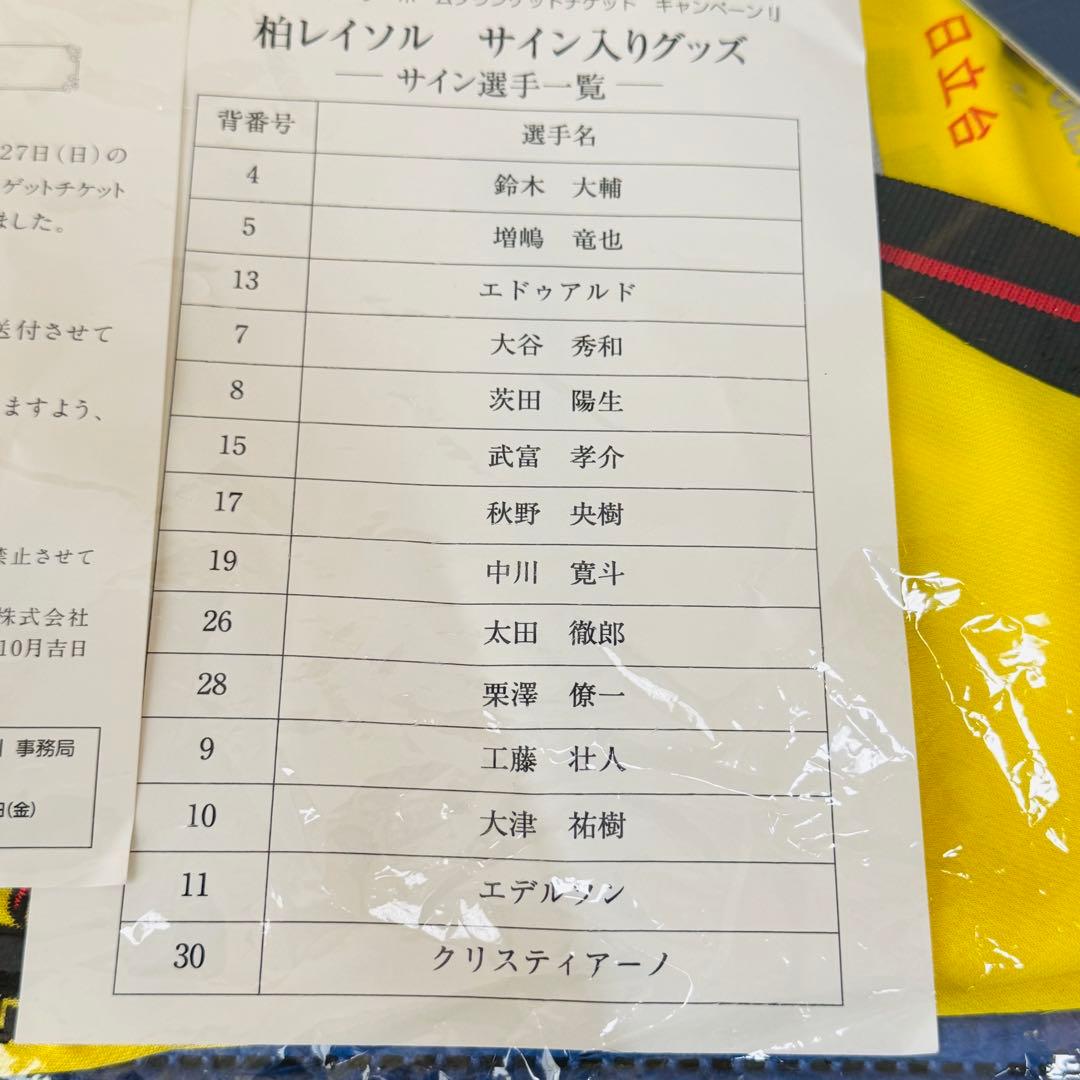 ホームタウンゲットチケット キャンペーン!」
柏レイソル サイン入りグッズ
― サイン選手一覧 ―
背番号 選手名
4 鈴木 大輔
5 増嶋 竜也
13 エドゥアルド
7 大谷 秀和
8 茨田 陽生
15 武富 孝介
17 秋野 央樹
19 中川 寛斗
26 太田 徹郎
28 栗澤 僚一
9 工藤 壮人
10 大津 祐樹
11 エデルソン
30 クリスティアーノ
27日(日)の
ゲットチケット
ました。
送付させて
ますよう、
禁止させて
株式会社
10月吉日
事務局
日(金)
日立台